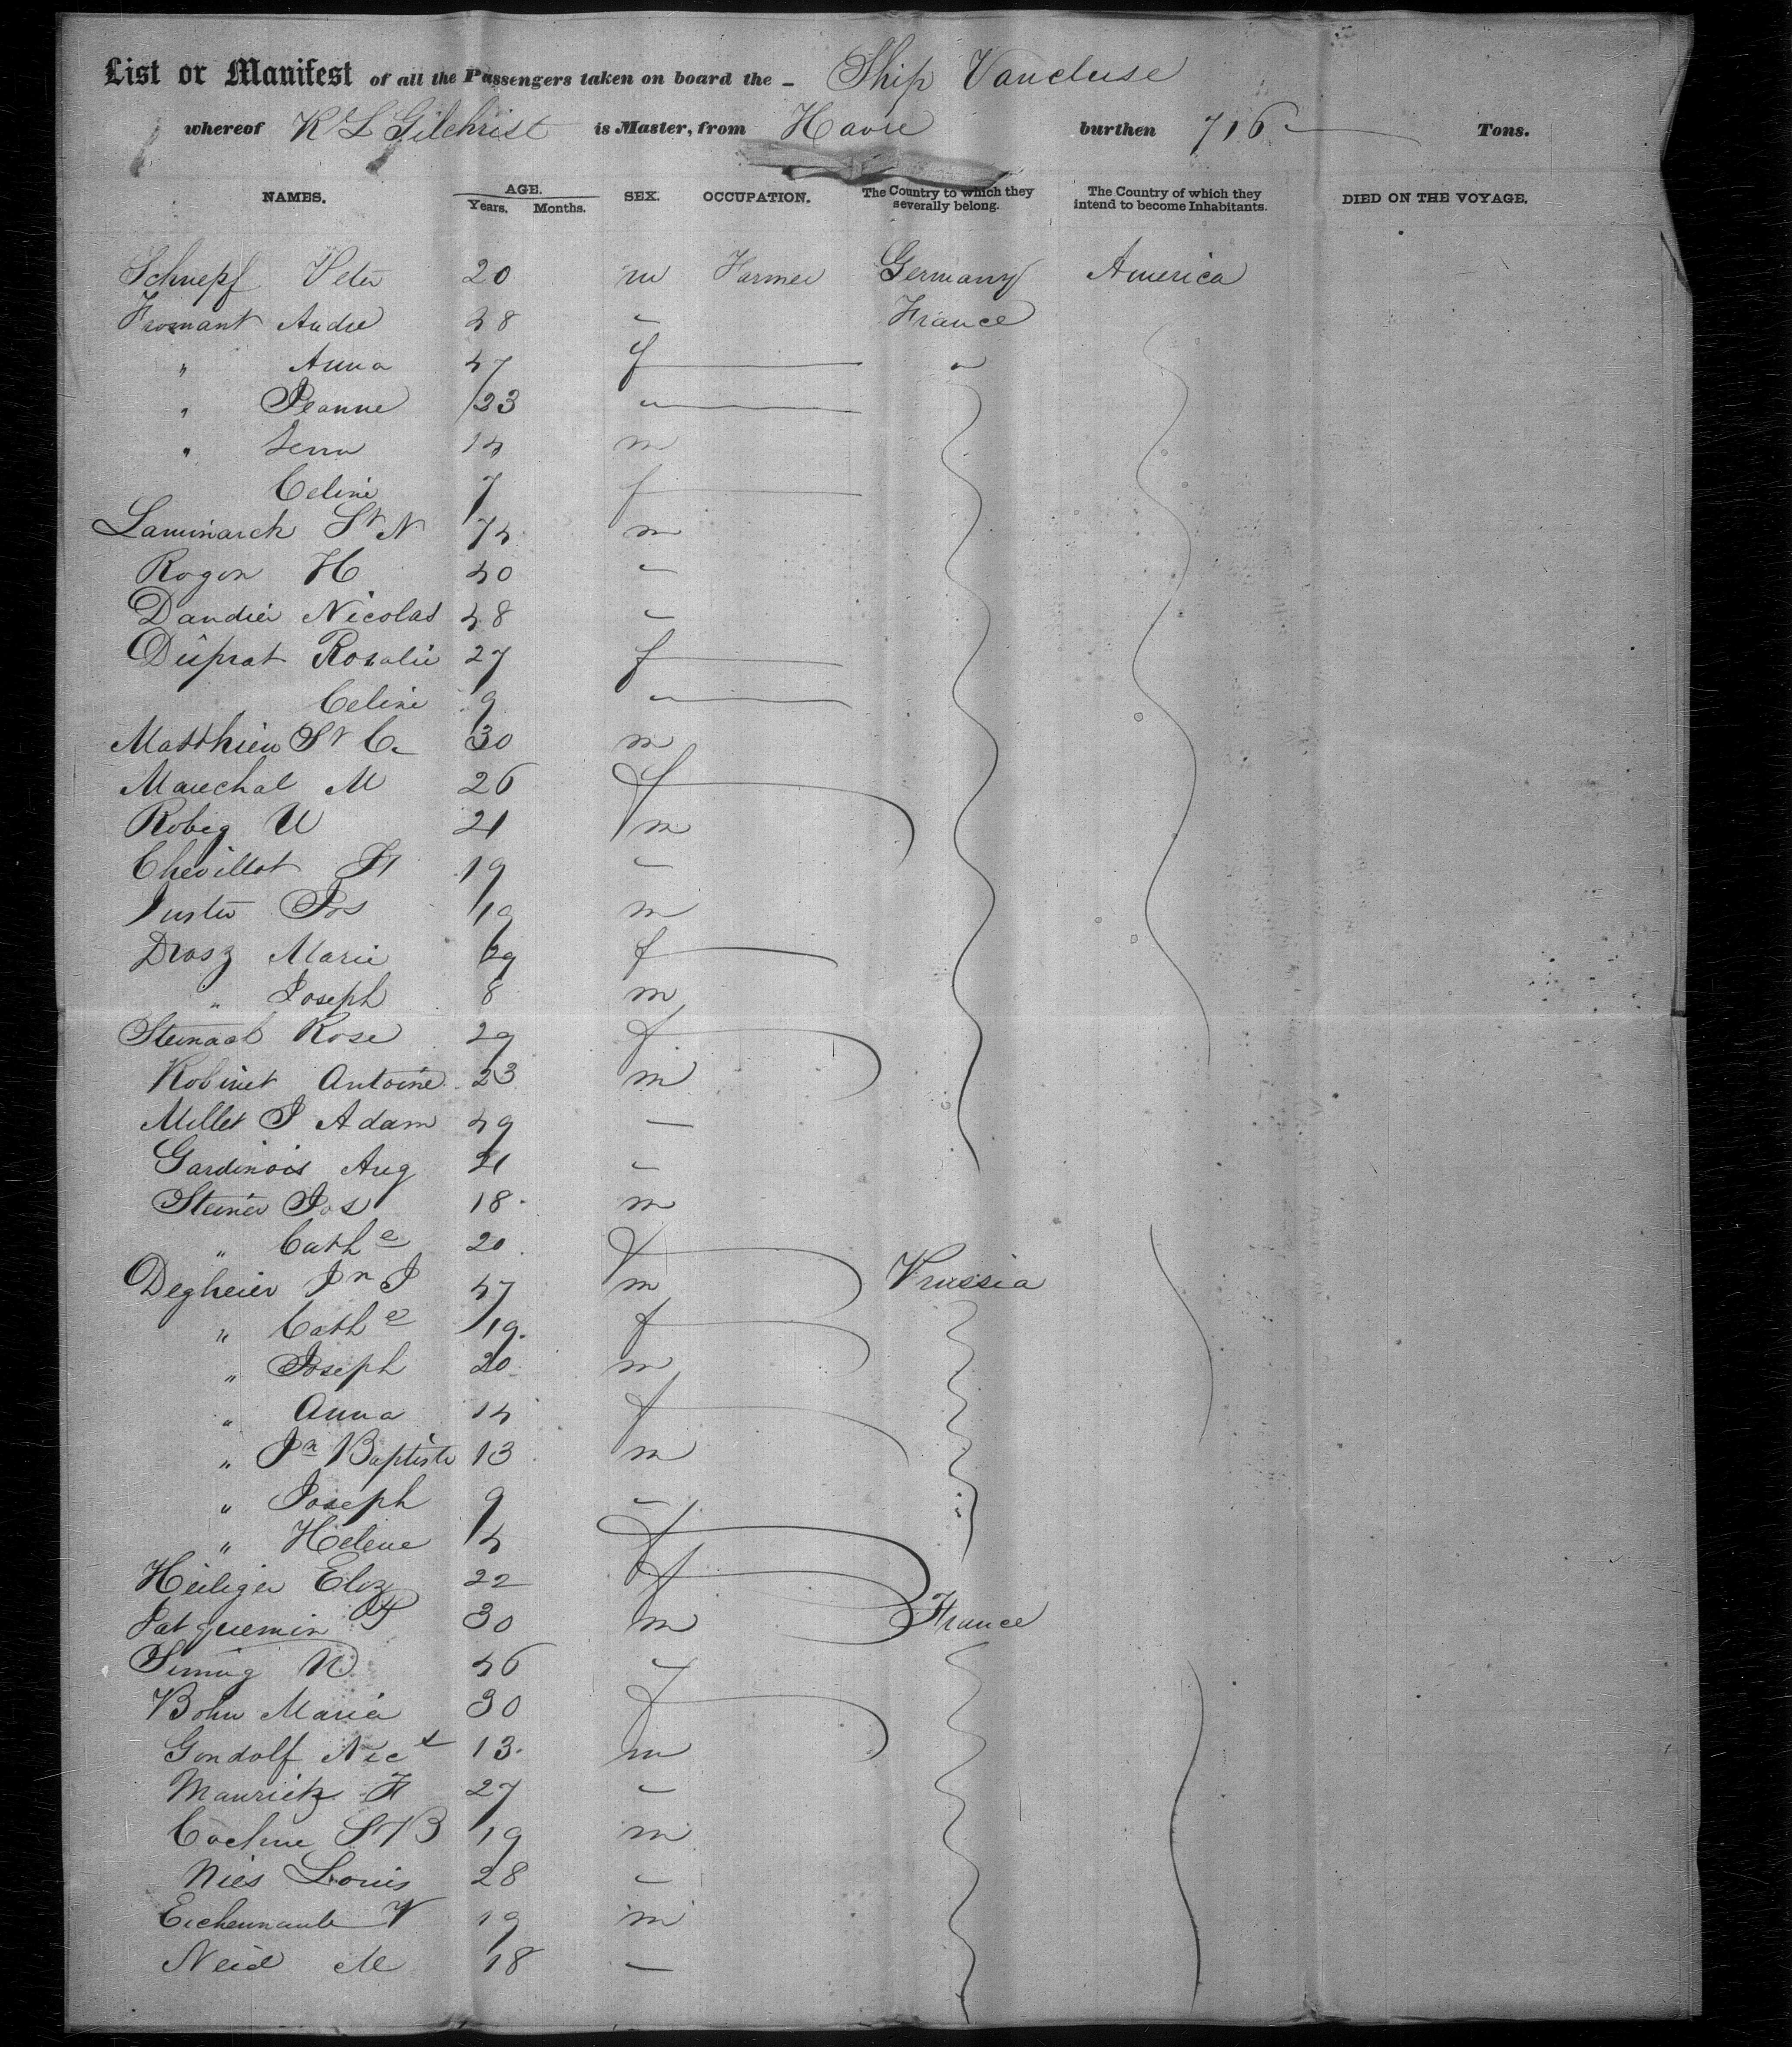 List or Manifest of all the Passengers taken on board the - Ship Vancluse
whereof R L Gilchrist is Master, from Havre burthen 716 Tons.
NAMES. AGE. Years. Months. SEX. OCCUPATION. The Country to which they severally belong. The Country of which they intend to become Inhabitants. DIED ON THE VOYAGE.
Schnepf Peter 20 m Farmer Germany America
Fromant Andre 48 " France
" Anna 47 f "
" Jeanne 23 "
" 14 m
Celine 7 f
Laminarch St N 74 m
Rogon H 40 "
Dandier Nicolas 48 "
Duprat Rosalie 27 f
Celine 9 "
Matthieu St C. 30 m
Marechal M 26 f
Robeg U 21 m
Chevillot Ft 19 "
Juster Jos 19 m
Drosz Marie 29 f
" Joseph 8 m
Rose 29 f
Robinet Antoine 23 m
Millet J Adam 49 "
Gardinois Aug 21 "
Steiner Jos 18 m
" Cathe 20 f
Degheier Jn J 47 m Prussia
" Cathe 19 f
" Joseph 20 m
" Anna 14 f
" Jn Baptiste 13 m
" Joseph 9 "
" Helene 4 f
Heiliger Eliz 22 f
Jatquemin F 30 m France
N 46 "
Bohn Maria 30 f
Gondolf Nics 13 m
Mauritz Ft 27 "
St B 19 m
Nies Louis 28 "
V 19 m
Neid M 18 "